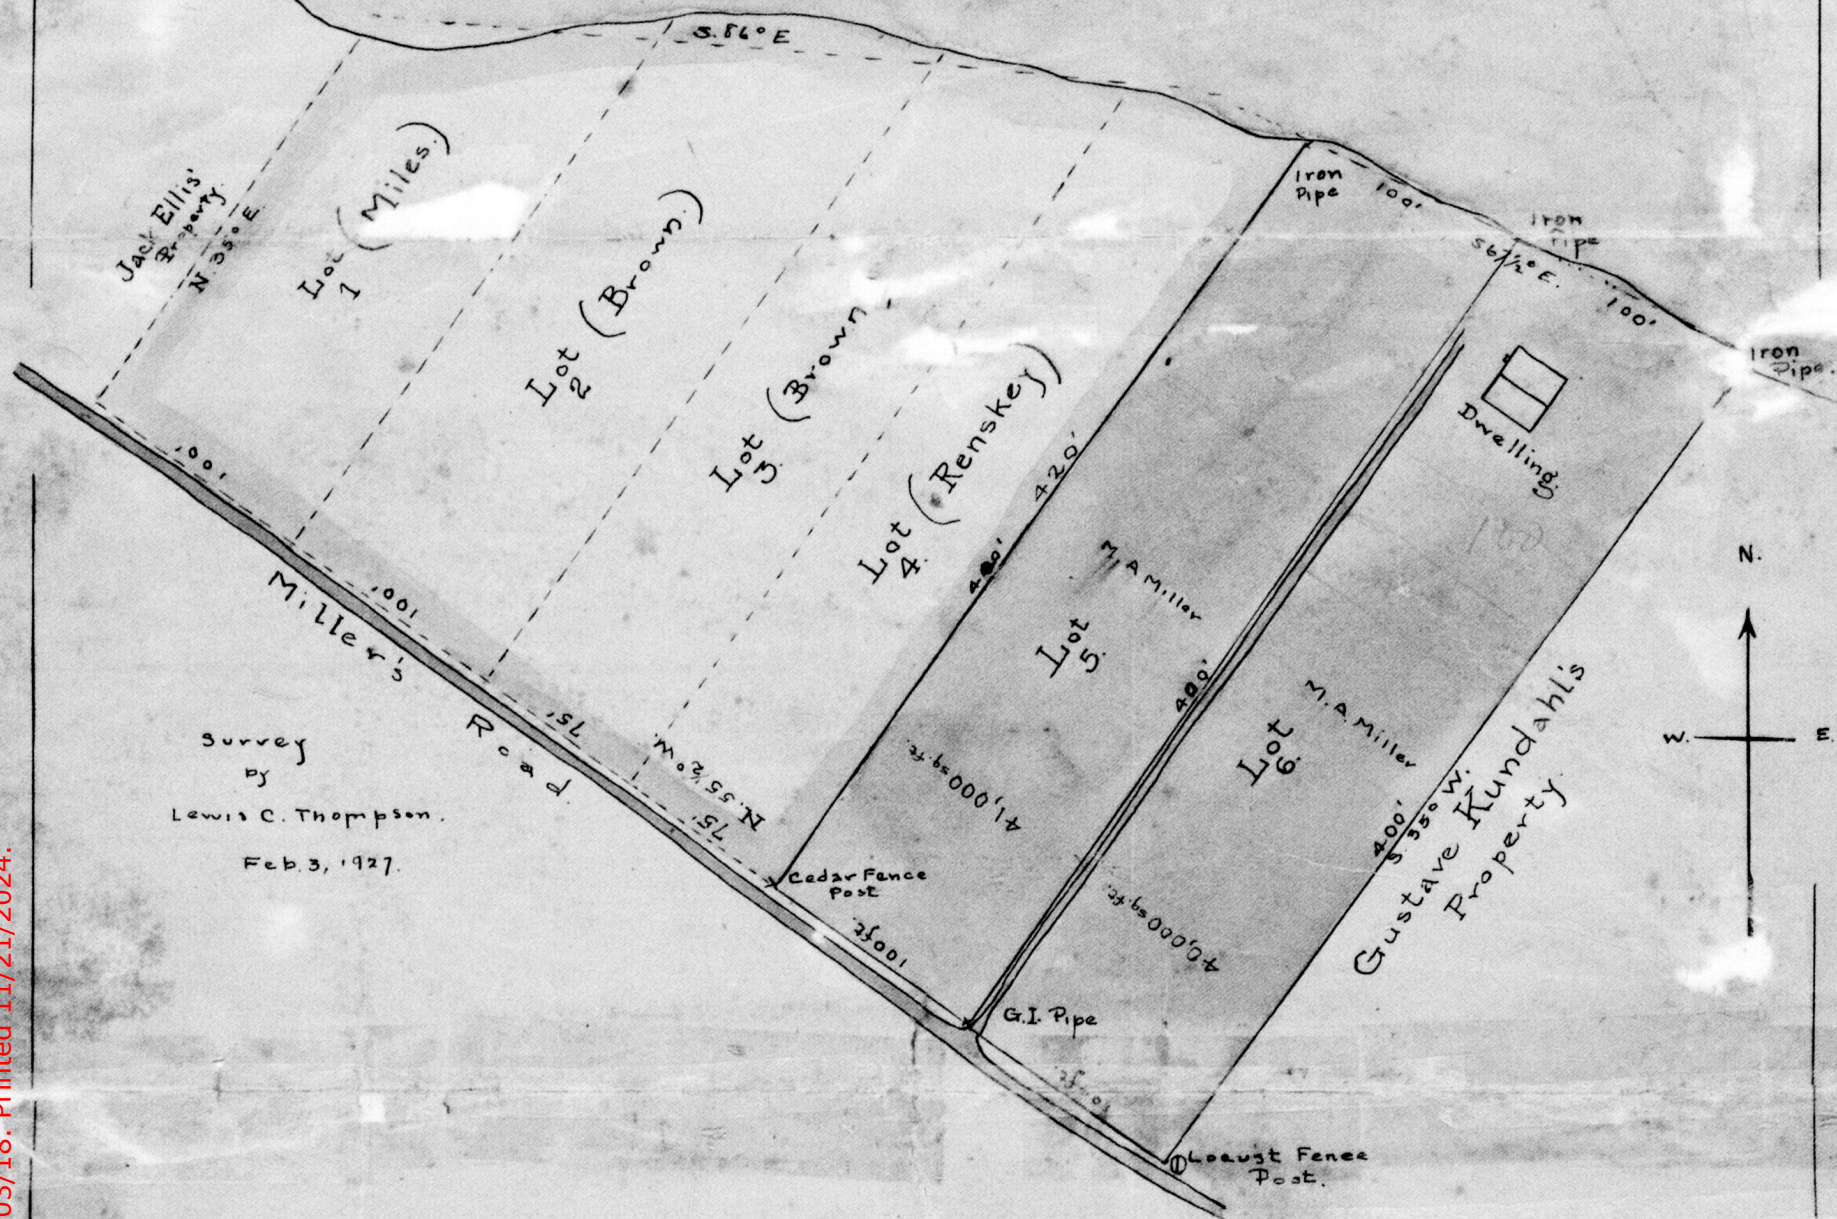 S. 86° E
Jack Ellis'
Property.
N. 35° E.
Lot
1
(Miles.)
Lot
2
(Brown.)
Lot
3.
(Brown
Lot
4.
(Renskey)
Iron
Pipe
100'
Iron
Pipe
S 67 1/2° E.
100'
Iron
Pipe.
Dwelling.
100
420'
400'
M. A Miller
Lot
5.
41,000 sq. ft.
400'
M. A. Miller
Lot
6.
40,000 sq. ft.
400'
S. 35° W.
Gustave Kundahl's
Property.
N.
W.
E.
100'
100'
75'
75'
N. 55 1/2° W.
Miller's
Road.
Cedar Fence
Post
100 ft.
G.I. Pipe
ft.
Locust Fence
Post.
Survey
by
Lewis C. Thompson.
Feb. 3, 1927.
03/18. Printed 11/21/2024.